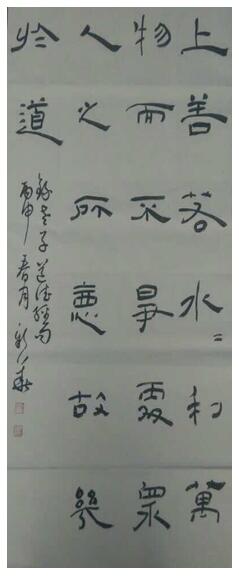 上善若水〻利萬
物而不爭處眾
人之所惡故幾
於道
錄老子道德經句
丙申春月